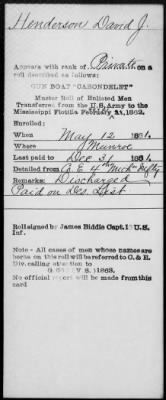 Henderson David J.
Appears with rank of Private on a
roll described as follows:
GUN BOAT "CARONDELET"
Muster Roll of Enlisted Men
Transferred from the U.S. Army to the
Mississippi Flotilla February 1862.
Enrolled:
When May 12 1861.
Where Munroe
Last paid to Dec 31 1861
Detailed from Co. E 4 Mich Infty
Remarks: Discharged
Paid on Des. List
Roll signed by James Biddle Capt. 15 U.S.
Inf.
Note - All cases of men whose names are
borne on this roll will be referred to C. & R.
Div. calling attention to
1863.
No official report will be made from this
card